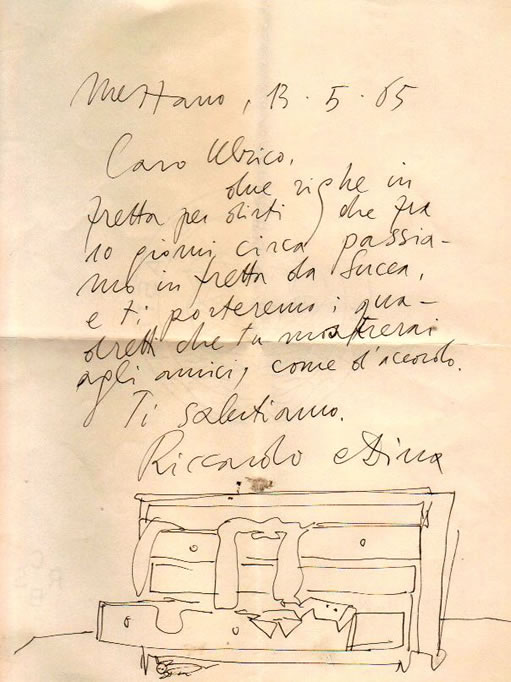 Mestano, 13.5.65
Caro Ulrico,
due righe in
fretta per dirti che fra
10 giorni circa passia-
mo in fretta da Lucca,
e ti porteremo i qua-
dretti che tu mostrerai
agli amici, come d'accordo.
Ti salutiamo.
Riccardo e Dina